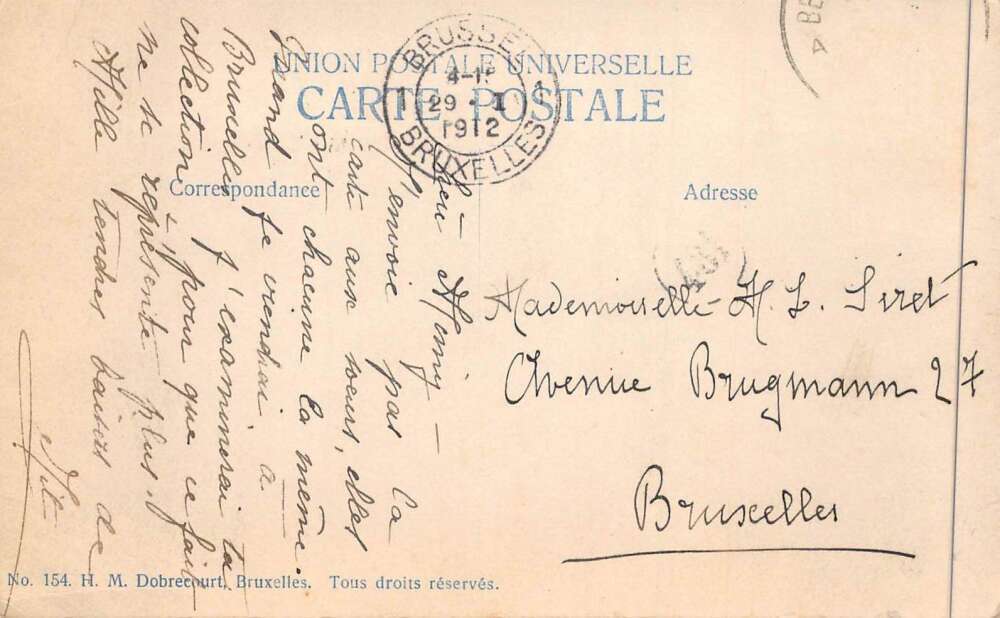 UNION POSTALE UNIVERSELLE
CARTE POSTALE
BRUSSEL
1 29 · I 1
1912
BRUXELLES
Correspondance
Adresse
J'envoie pas la
carte aux sœurs, elles
ont chacune la même.
Quand je viendrai à
Bruxelles j'examinerai ta
collection, pour que ce fait
ne se représente plus.
Mille tendres baisers de
Mademoiselle H. L. Siret
Avenue Brugmann 27
Bruxelles
No. 154. H. M. Dobrecourt, Bruxelles. Tous droits réservés.